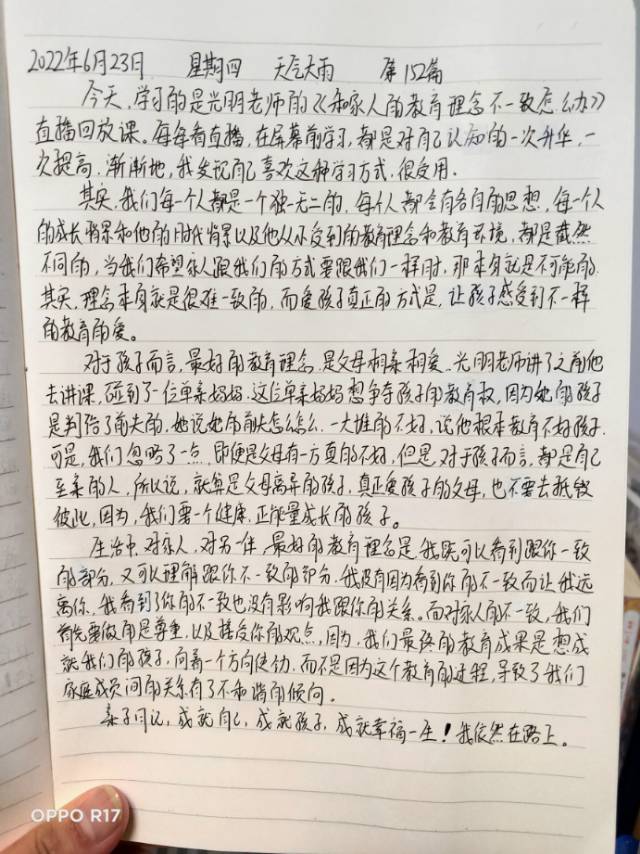 2022年6月23日 星期四 天气大雨 第152篇
今天,学习的是光明老师的《和家人的教育理念不一致怎么办》
直播回放课。每每看直播,在屏幕前学习,都是对自己认知的一次升华,一
次提高,渐渐地,我发现自己喜欢这种学习方式,很受用。
其实,我们每一个人都是一个独一无二的,每个人都会有各自的思想,每一个人
的成长背景和他的时代背景以及他从小受到的教育理念和教育环境,都是截然
不同的,当我们希望家人跟我们的方式要跟我们一样时,那本身就是不可能的
其实,理念本身就是很难一致的,而爱孩子真正的方式是,让孩子感受到不一样
的教育的爱。
对于孩子而言,最好的教育理念,是父母相亲相爱。光明老师讲了之前他
去讲课,碰到了一位单亲妈妈,这位单亲妈妈想争夺孩子的教育权,因为她的孩子
是判给了前夫的,她说她的前夫怎么怎么,一大堆的不好,说他根本教育不好孩子.
可是,我们忽略了一点,即使是父母有一方真的不好,但是,对于孩子而言,都是自己
至亲的人,所以说,就算是父母离异的孩子,真正爱孩子的父母,也不要去诋毁
彼此,因为,我们要一个健康,正能量成长的孩子。
生活中,对家人,对另一伴,最好的教育理念是我既可以看到跟你一致
的部分,又可以理解跟你不一致的部分,我没有因为看到你的不一致而让我远
离你,我看到了你的不一致也没有影响我跟你的关系。而对家人的不一致,我们
首先要做的是尊重,以及接受你的观点,因为,我们最终的教育成果是想成
就我们的孩子,向着一个方向使劲,而不是因为这个教育的过程,导致了我们
家庭成员间的关系有了不和谐的倾向.
亲子日记,成就自己,成就孩子,成就幸福一生!我依然在路上。
OPPO R17